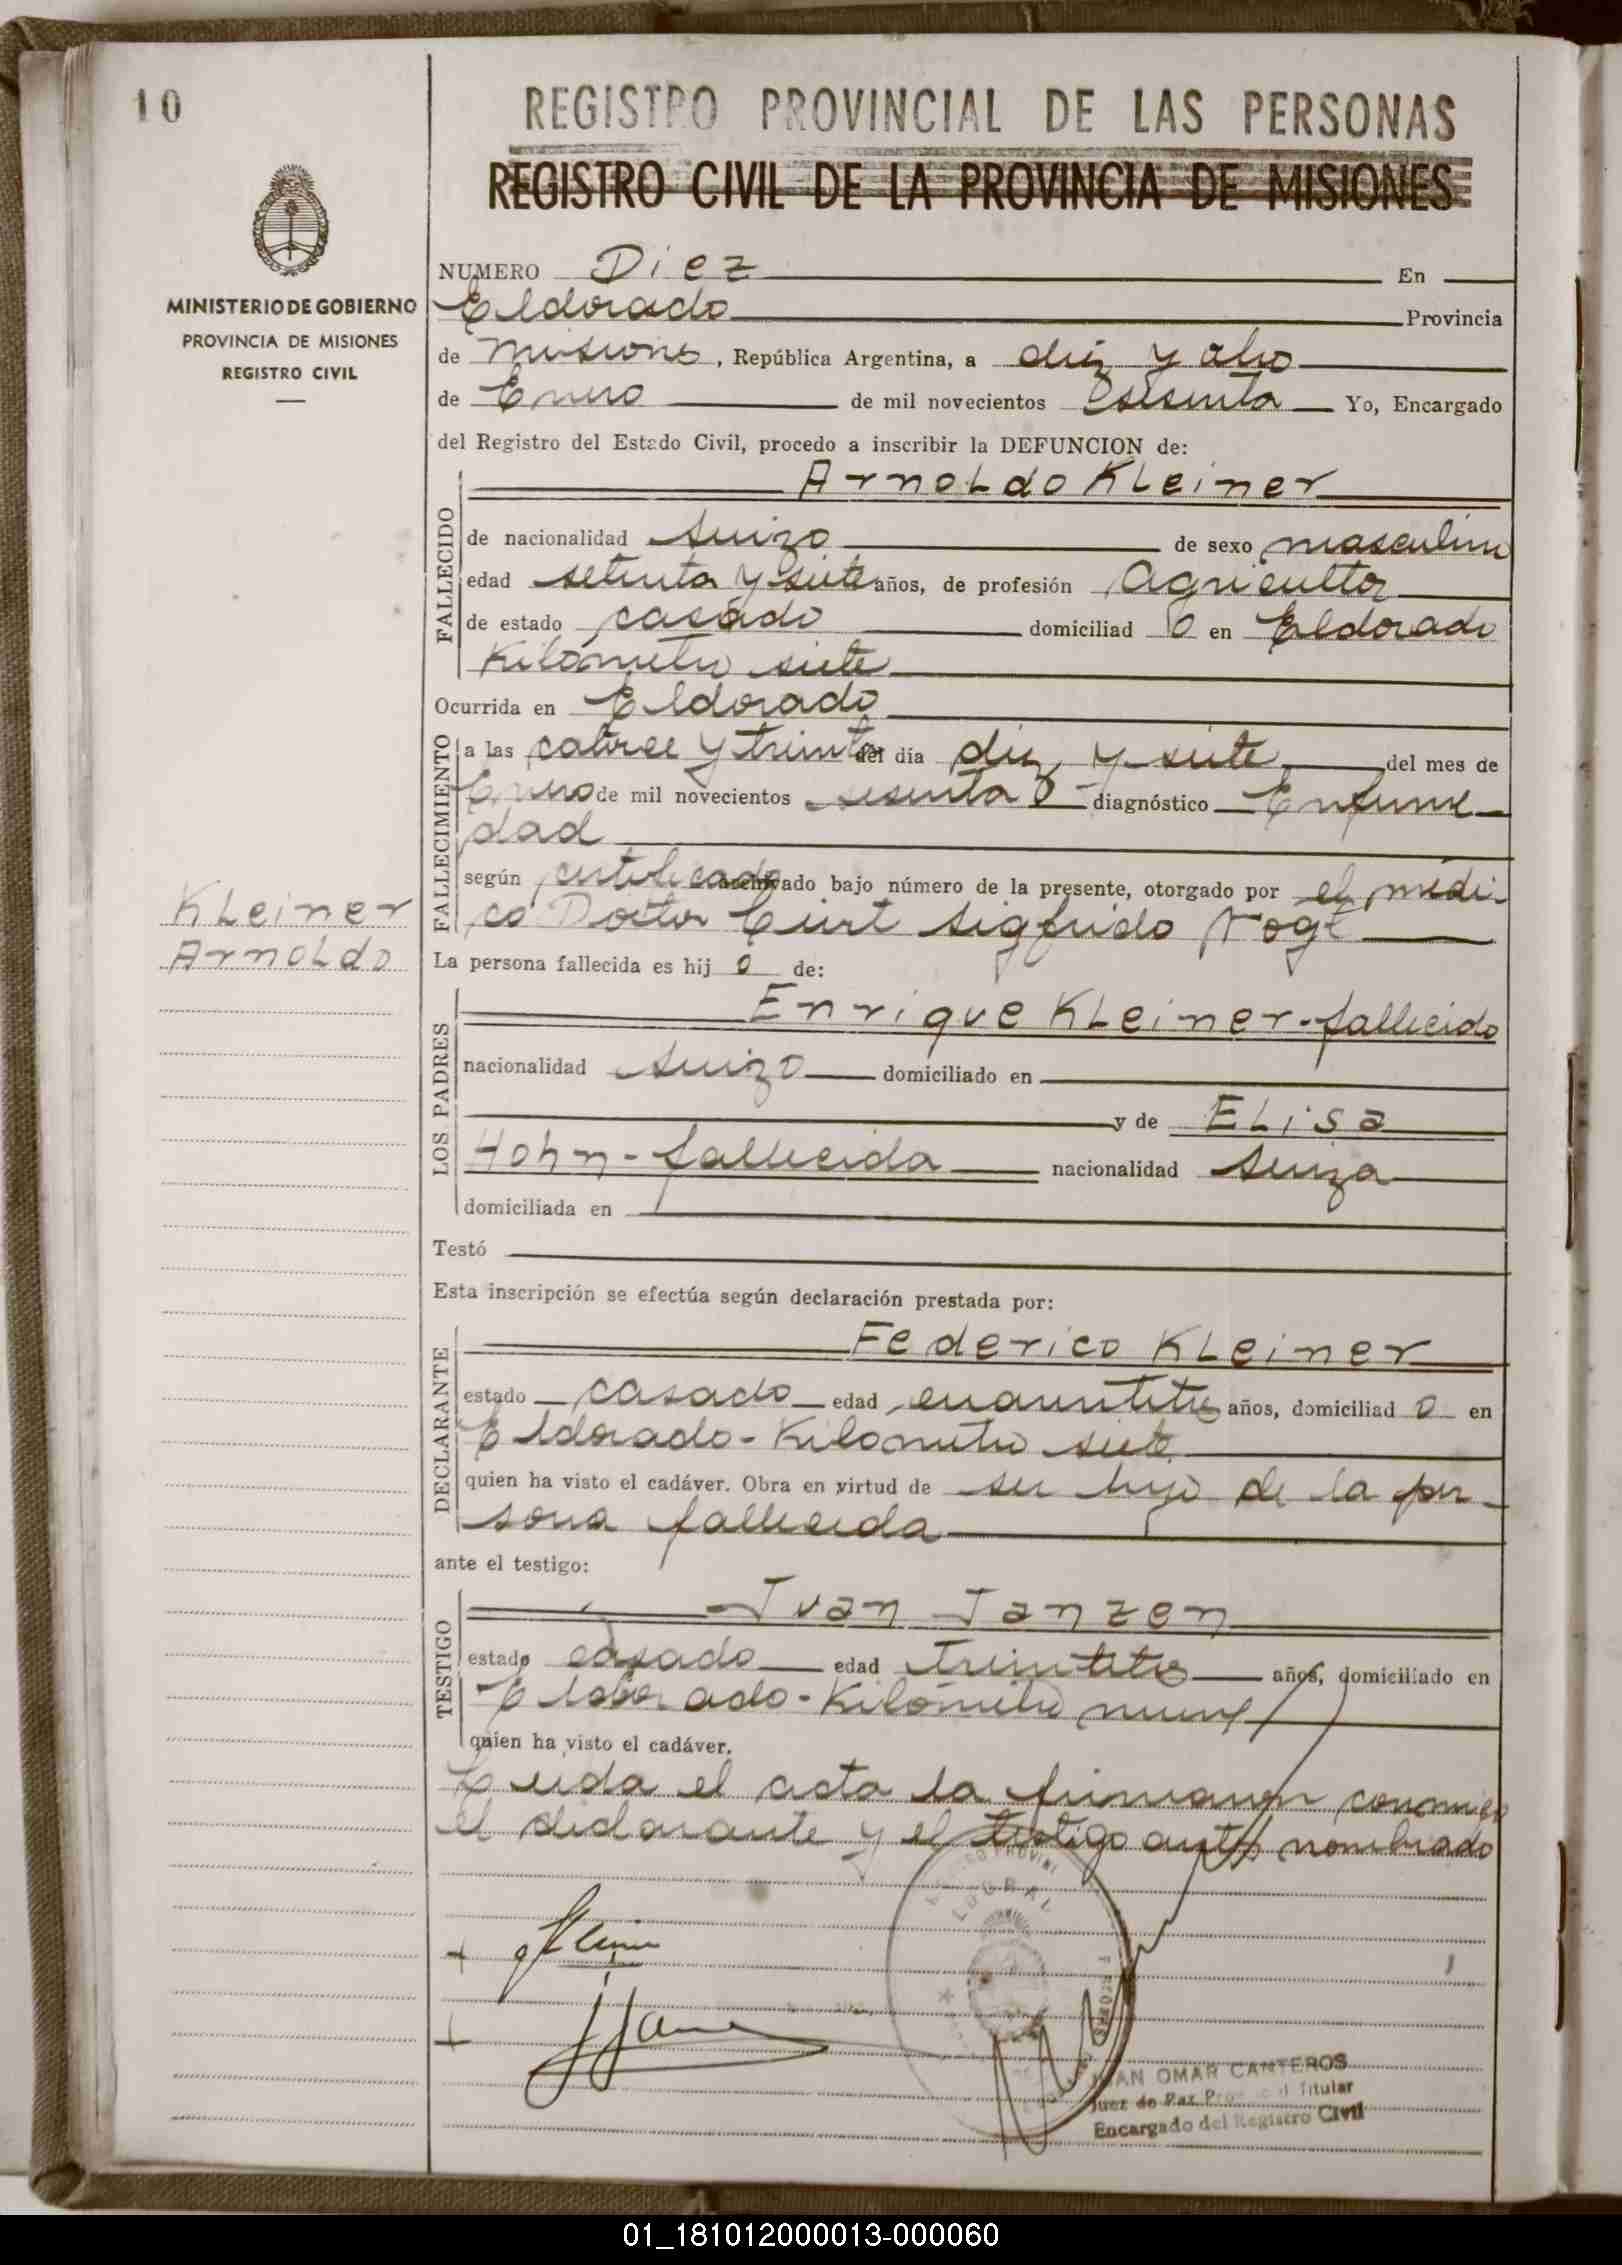 10
REGISTRO PROVINCIAL DE LAS PERSONAS
REGISTRO CIVIL DE LA PROVINCIA DE MISIONES
MINISTERIO DE GOBIERNO
PROVINCIA DE MISIONES
REGISTRO CIVIL
NUMERO Diez En
Eldorado Provincia
de Misiones, República Argentina, a diez y ocho
de Enero de mil novecientos sesenta Yo, Encargado
del Registro del Estado Civil, procedo a inscribir la DEFUNCION de:
FALLECIDO
Arnoldo Kleiner
de nacionalidad suizo de sexo masculino
edad setenta y siete años, de profesión Agricultor
de estado casado domiciliad o en Eldorado
Kilómetro siete
Ocurrida en Eldorado
FALLECIMIENTO
a las catorce y treinta del día diez y siete del mes de
Enero de mil novecientos sesenta diagnóstico Enferme-
dad
según certificado archivado bajo número de la presente, otorgado por el médi-
co Doctor Curt Sigfrido Vogt
Kleiner
Arnoldo
La persona fallecida es hij o de:
LOS PADRES
Enrique Kleiner - fallecido
nacionalidad suizo domiciliado en
y de Elisa
Hohn - fallecida nacionalidad suiza
domiciliada en
Testó
Esta inscripción se efectúa según declaración prestada por:
DECLARANTE
Federico Kleiner
estado casado edad años, domiciliad o en
Eldorado - Kilometro siete
quien ha visto el cadáver. Obra en virtud de ser hijo de la per-
sona fallecida
ante el testigo:
TESTIGO
Juan Janzen
estado casado edad años, domiciliado en
Eldorado - Kilómetro nueve
quien ha visto el cadáver.
Leida el acta la firmaron conmigo
el declarante y el testigo antes nombrado
JUAN OMAR CANTEROS
Juez de Paz Titular
Encargado del Registro Civil
01_181012000013-000060